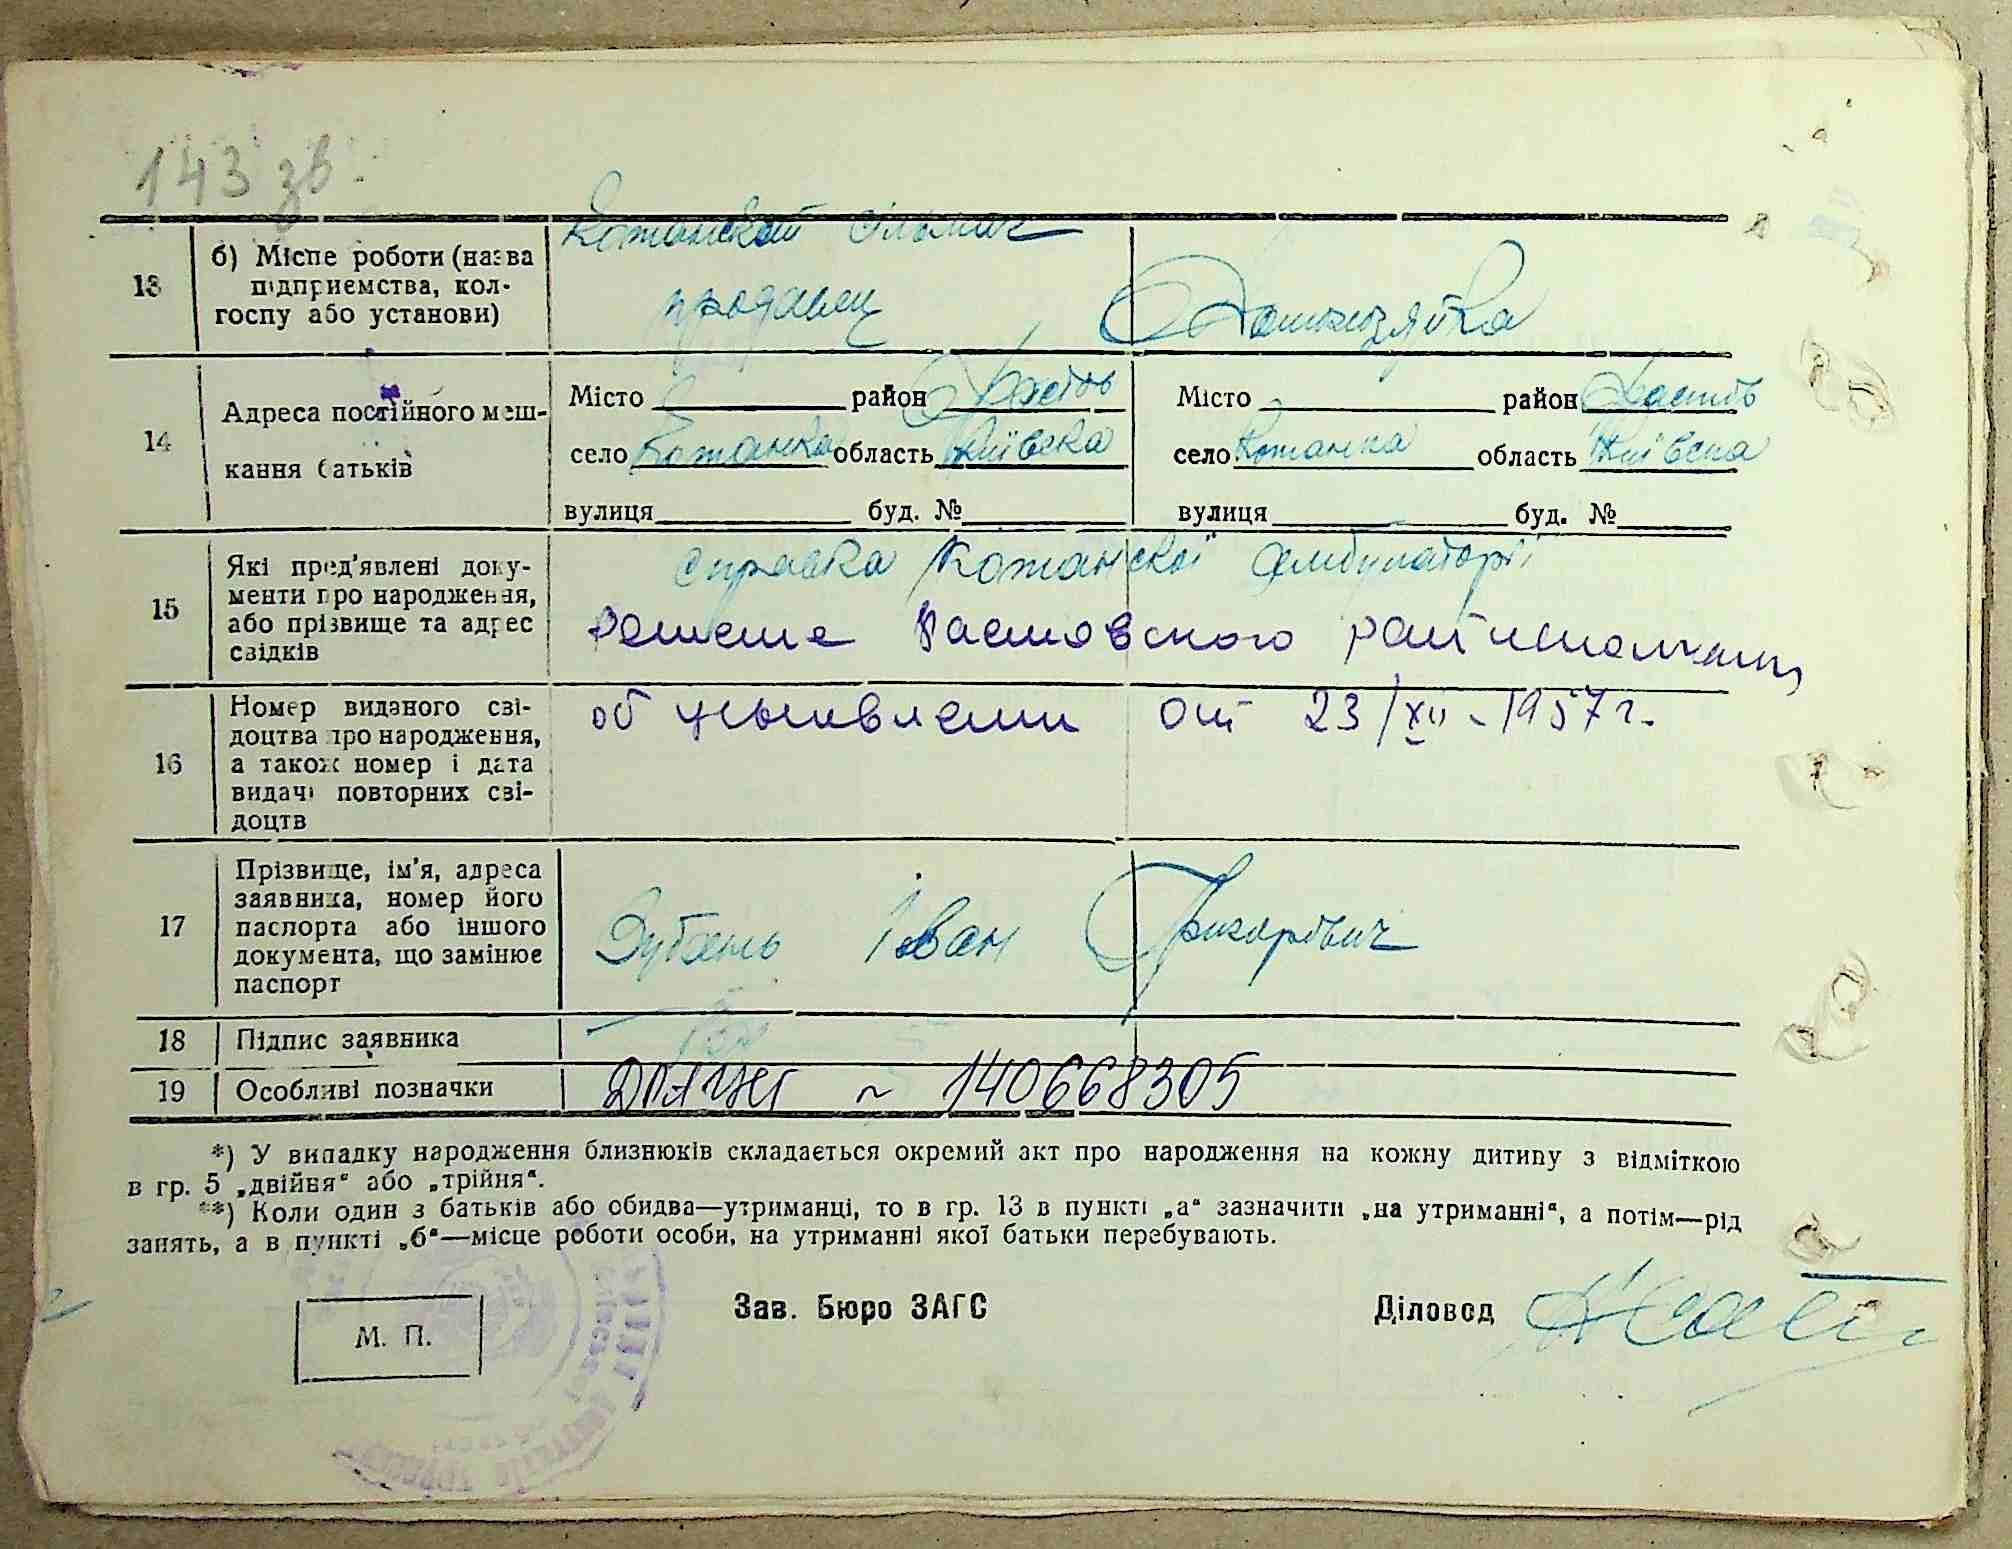 143 зв.
Кожанский сільмаг
13 б) Місце роботи (назва підприємства, колгоспу або установи)
продавец Домохозяйка
14 Адреса постійного мешкання батьків
Місто район Фастов Місто район Фастів
село Кожанка область Київска село Кожанка область Київска
вулиця буд. № вулиця буд. №
15 Які пред'явлені документи про народження, або прізвище та адрес свідків
справка Кожанскої амбулаторії
решение Фастовского райисполкома
16 Номер виданого свідоцтва про народження, а також номер і дата видачі повторних свідоцтв
об усыновлении от 23/XII - 1957 г.
17 Прізвище, ім'я, адреса заявника, номер його паспорта або іншого документа, що замінює паспорт
Зубань Іван Григорович
18 Підпис заявника
19 Особливі позначки
140668305
*) У випадку народження близнюків складається окремий акт про народження на кожну дитину з відміткою
в гр. 5 „двійня“ або „трійня“.
**) Коли один з батьків або обидва—утриманці, то в гр. 13 в пункті „а“ зазначити „на утриманні“, а потім—рід
занять, а в пункті „б“—місце роботи особи, на утриманні якої батьки перебувають.
М. П.
Зав. Бюро ЗАГС Діловод